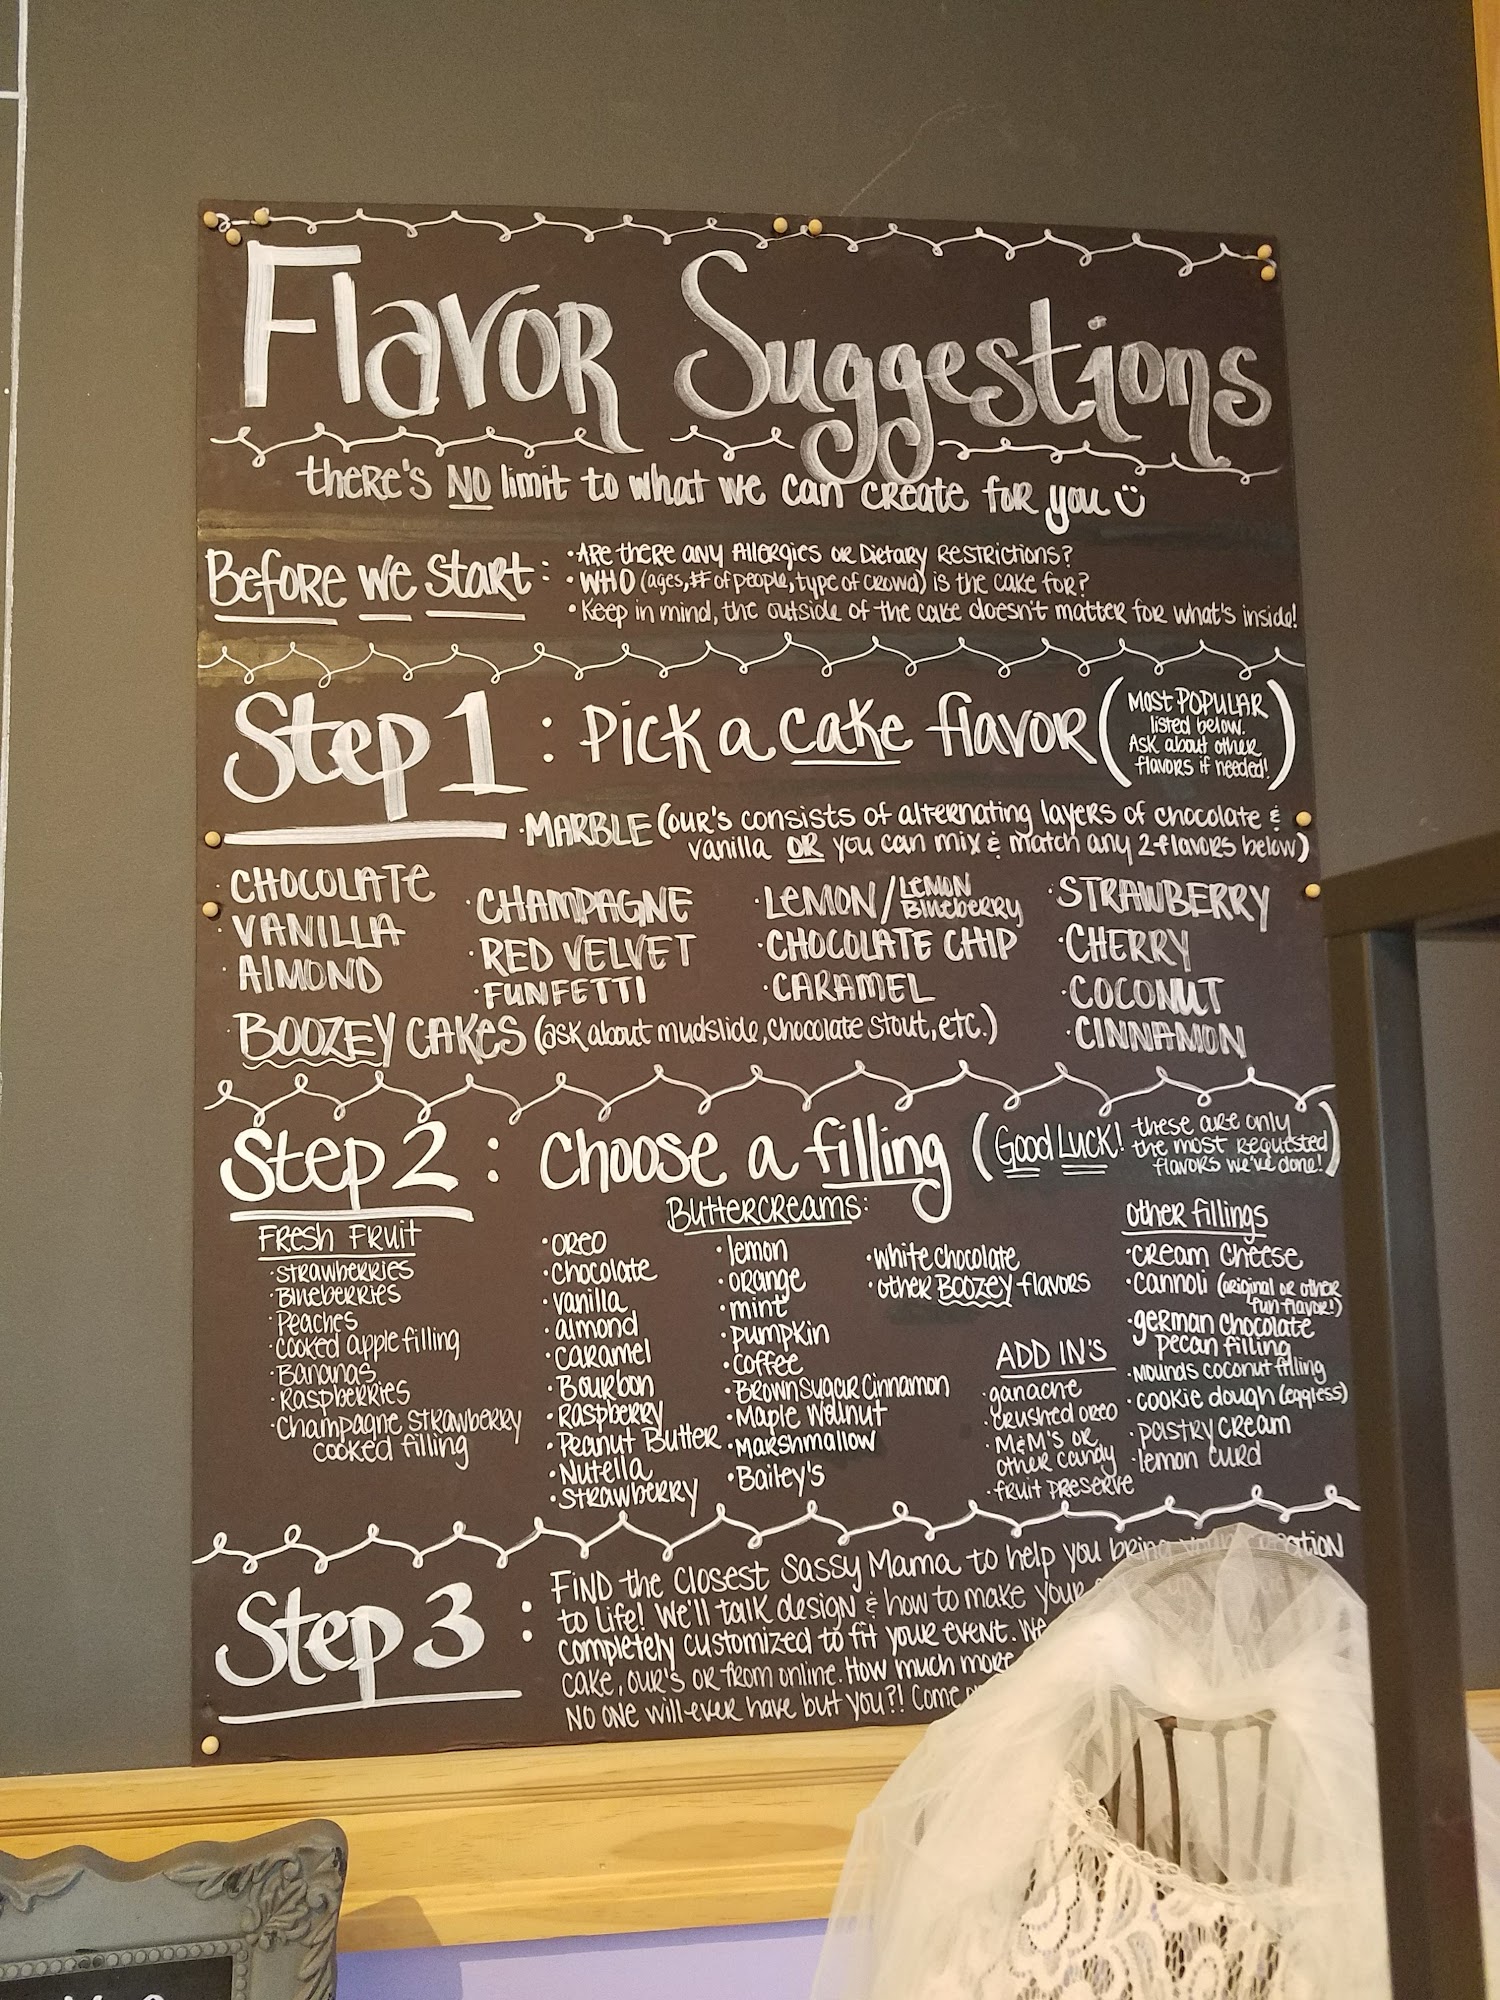 Flavor Suggestions
there's NO limit to what we can create for you
Before we start:
• Are there any Allergies or Dietary Restrictions?
• WHO (ages, # of people, type of crowd) is the cake for?
• Keep in mind, the outside of the cake doesn't matter for what's inside!
Step 1: Pick a cake flavor
(Most POPULAR
listed below.
Ask about other
flavors if needed!)
• MARBLE (our's consists of alternating layers of chocolate &
vanilla OR you can mix & match any 2 flavors below)
• CHOCOLATE
• VANILLA
• ALMOND
• CHAMPAGNE
• RED VELVET
• FUNFETTI
• LEMON/LEMON
Blueberry
• CHOCOLATE CHIP
• CARAMEL
• STRAWBERRY
• CHERRY
• COCONUT
• CINNAMON
• BOOZEY CAKES (ask about mudslide, chocolate stout, etc.)
Step 2: Choose a filling
(Good Luck! these are only
the most requested
flavors we've done!)
FRESH FRUIT
• Strawberries
• Blueberries
• Peaches
• cooked apple filling
• Bananas
• Raspberries
• Champagne Strawberry
cooked filling
Buttercreams:
• oreo
• chocolate
• vanilla
• almond
• caramel
• Bourbon
• Raspberry
• Peanut Butter
• Nutella
• Strawberry
• lemon
• orange
• mint
• pumpkin
• coffee
• Brown Sugar Cinnamon
• Maple Walnut
• Marshmallow
• Bailey's
• white chocolate
• other BOOZEY flavors
ADD IN'S
• ganache
• crushed oreo
• M&M's or
other candy
• fruit preserve
other fillings
• cream cheese
• cannoli (original or other
fun flavor!)
• german chocolate
pecan filling
• Mounds coconut filling
• cookie dough (eggless)
• pastry cream
• lemon curd
Step 3:
Find the closest Sassy Mama to help you bring
to life! We'll talk design & how to make your
completely customized to fit your event. We
cake, our's or from online. How much more
No one will ever have but you?! Come